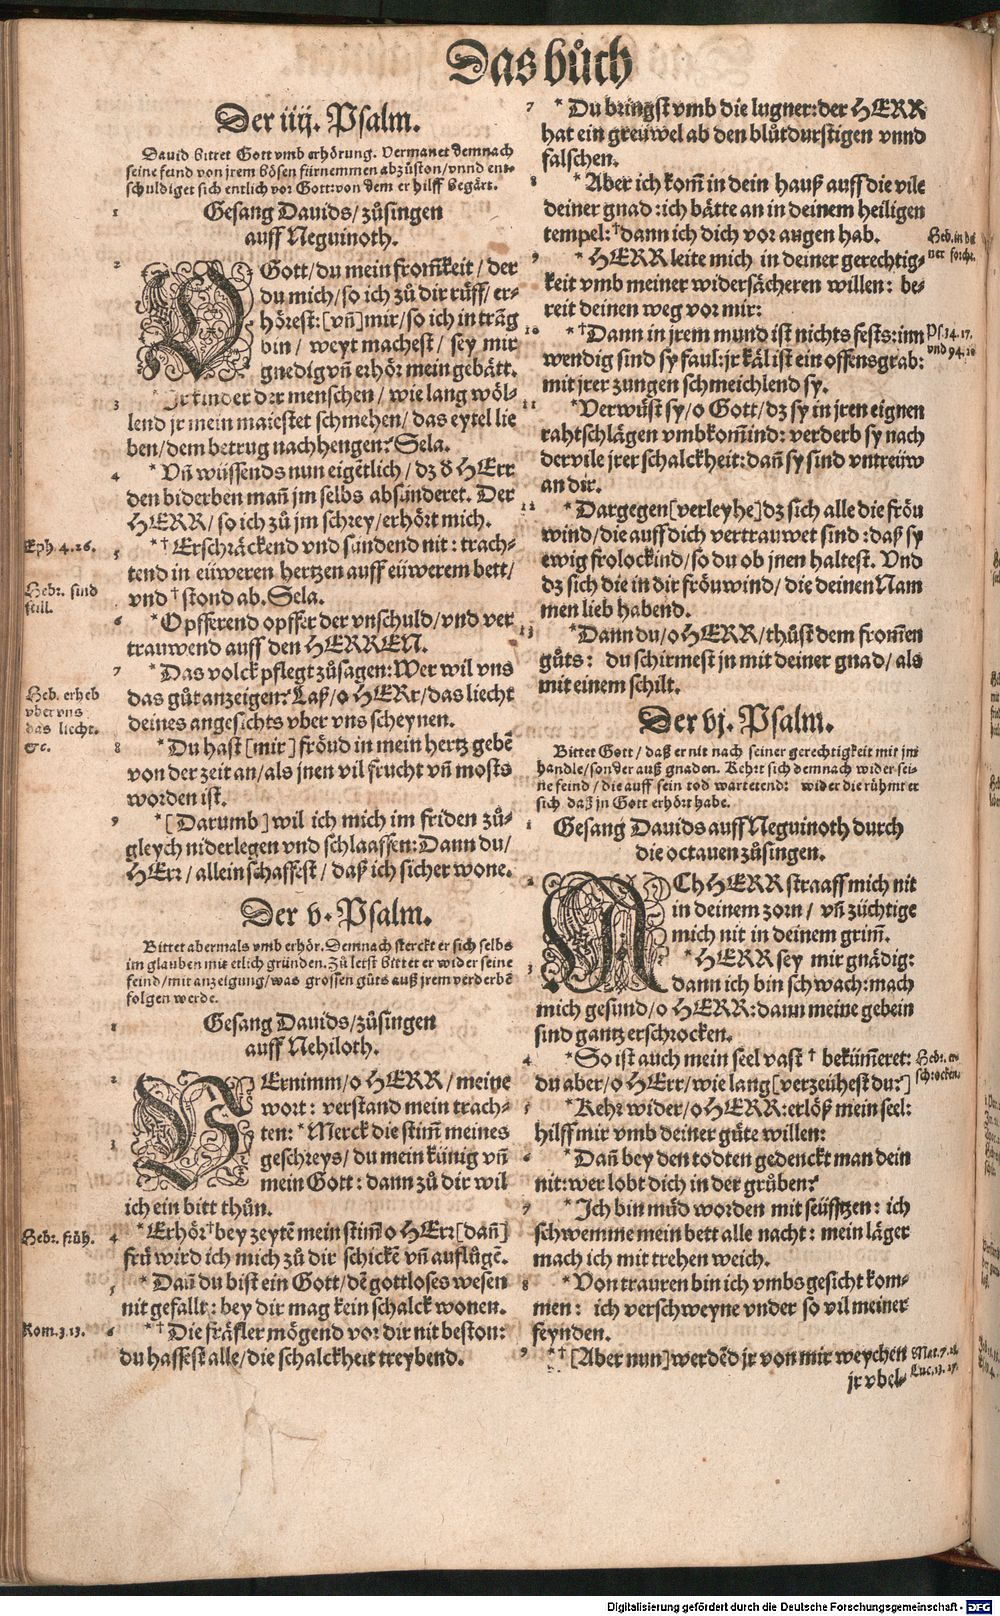 Das bůch
Der iiij. Psalm.
Dauid bittet Gott vmb erhörung. Vermanet demnach
seine feind von jrem bösen fürnemmen abzůston/vnnd ent-
schuldiget sich entlich vor Gott: von dem er hilff begärt.
1 Gesang Dauids/zůsingen
auff Neguinoth.
2 O Gott/du mein from̃keit/der
du mich/so ich zů dir rüff/er-
hörest: [vñ] mir/so ich in träng
bin/ weyt machest/ sey mir
gnedig vñ erhör mein gebätt.
3 * Jr kinder der menschen/wie lang wöl-
lend jr mein maiestet schmehen/das eytel lie
ben/dem betrug nachhengen? Sela.
4 * Vñ wüssends nun eigẽtlich/dz d HErr
den biderben mañ jm selbs absünderet. Der
HERR/so ich zů jm schrey/erhört mich.
Eph. 4. 26.
5 *† Erschräckend vnd sündend nit: trach-
tend in eüweren hertzen auff eüwerem bett/
vnd † stond ab. Sela.
Hebr. sind
still.
6 * Opfferend opffer der vnschuld/vnd ver
trauwend auff den HERREN.
7 * Das volck pflegt zůsagen: Wer wil vns
das gůt anzeigen? Laß/o HERr/das liecht
deines angesichts vber vns scheynen.
Heb. erheb
vber vns
das liecht.
&c.
8 * Du hast [mir] fröud in mein hertz gebẽ
von der zeit an/als jnen vil frucht vñ mosts
worden ist.
9 * [Darumb] wil ich mich im friden zů-
gleych niderlegen vnd schlaaffen: Dann du/
HErr/allein schaffest/daß ich sicher wone.
Der v. Psalm.
Bittet abermals vmb erhör. Demnach sterckt er sich selbs
im glauben mit etlich gründen. Zů letst bittet er wider seine
feind/mit anzeigung/was grossen gůts auß jrem verderbẽ
folgen werde.
1 Gesang Dauids/zůsingen
auff Nehiloth.
2 VErnimm/o HERR/meine
wort: verstand mein trach-
3 ten: * Merck die stim̃ meines
geschreys/du mein künig vñ
mein Gott: dann zů dir wil
ich ein bitt thůn.
Hebr. früh.
4 * Erhör † bey zeytẽ mein stim̃ o HErr [dañ]
frü wird ich mich zů dir schickẽ vñ auflůgẽ.
5 * Dañ du bist ein Gott/dẽ gottloses wesen
nit gefallt: bey dir mag kein schalck wonen.
Rom. 3. 13.
6 *† Die fräfler mögend vor dir nit beston:
du hassest alle/die schalckheit treybend.
7 * Du bringst vmb die lugner: der HERR
hat ein greüwel ab den blůtdurstigen vnnd
falschen.
8 * Aber ich kom̃ in dein hauß auff die vile
deiner gnad: ich bätte an in deinem heiligen
tempel: † dann ich dich vor augen hab.
Heb. in dei
ner forcht.
9 * HERR leite mich in deiner gerechtig-
keit vmb meiner widersächeren willen: be-
reit deinen weg vor mir:
10 *† Dann in jrem mund ist nichts fests: inn
wendig sind sy faul: jr käl ist ein offens grab:
mit jrer zungen schmeichlend sy.
Ps. 14. 17.
vnd 94. 10
11 * Verwüst sy/o Gott/dz sy in jren eignen
rahtschlägen vmbkom̃ind: verderb sy nach
der vile jrer schalckheit: dañ sy sind vntreüw
an dir.
12 * Dargegen [verleyhe] dz sich alle die fröu
wind/die auff dich vertrauwet sind: daß sy
ewig frolockind/so du ob jnen haltest. Vnd
dz sich die in dir fröuwind/die deinen Nam
men lieb habend.
13 * Dann du/o HERR/thůst dem from̃en
gůts: du schirmest jn mit deiner gnad/als
mit einem schilt.
Der vj. Psalm.
Bittet Gott/daß er nit nach seiner gerechtigkeit mit jm
handle/sonder auß gnaden. Kehrt sich demnach wider sei-
ne feind/die auff sein tod wartetend: wider die rühmt er
sich daß jn Gott erhört habe.
1 Gesang Dauids auff Neguinoth durch
die octauen zůsingen.
2 ACh HERR straaff mich nit
in deinem zorn/ vñ züchtige
mich nit in deinem grim̃.
3 * HERR sey mir gnädig:
dann ich bin schwach: mach
mich gesund/o HERR: dann meine gebein
sind gantz erschrocken.
4 * So ist auch mein seel vast † bekům̃eret:
du aber/o HErr/wie lang [verzeühest du?]
Hebr. er-
schrocken.
5 * Kehr wider/o HERR: erlöß mein seel:
hilff mir vmb deiner güte willen:
6 * Dañ bey den todten gedenckt man dein
nit: wer lobt dich in der grůben?
7 * Ich bin müd worden mit seüfftzen: ich
schwemme mein bett alle nacht: mein läger
mach ich mit trehen weich.
8 * Von trauren bin ich vmbs gesicht kom-
men: ich verschweyne vnder so vil meiner
feynden.
9 *† [Aber nun] werdẽd jr von mir weychen
Mat. 7. 23.
Luc. 13. 27.
jr vbel-
Digitalisierung gefördert durch die Deutsche Forschungsgemeinschaft - DFG